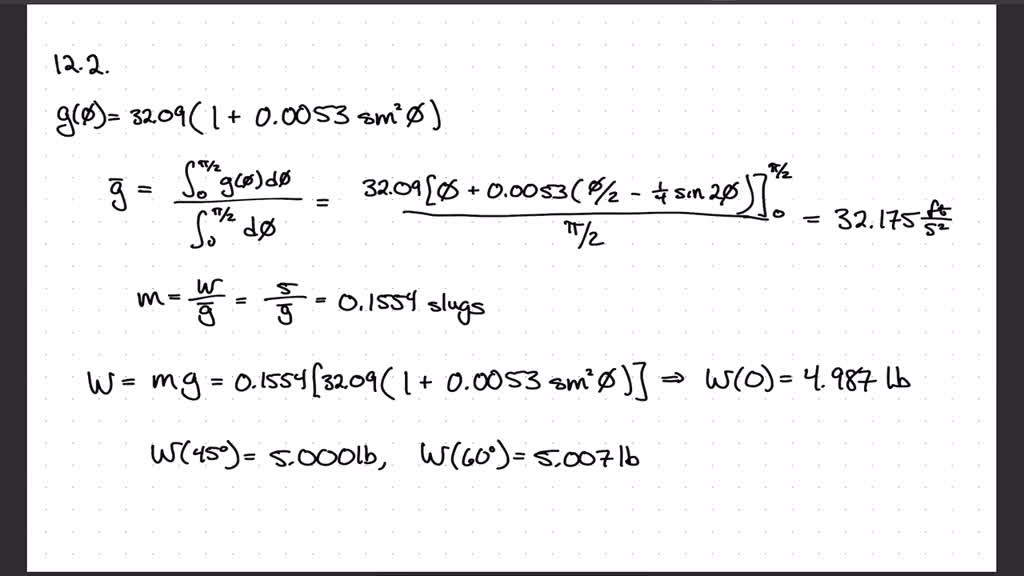 12.2.
g(φ) = 32.09 (1 + 0.0053 sin²φ)
ḡ = ∫₀^π/2 g(φ)dφ / ∫₀^π/2 dφ = 32.09[φ + 0.0053(φ/2 - 1/4 sin 2φ)]₀^π/2 / π/2 = 32.175 ft/s²
m = W/ḡ = 5/ḡ = 0.1554 slugs
W = mg = 0.1554[32.09(1 + 0.0053 sin²φ)] ⇒ W(0) = 4.987 lb
W(45°) = 5.000 lb, W(60°) = 5.007 lb